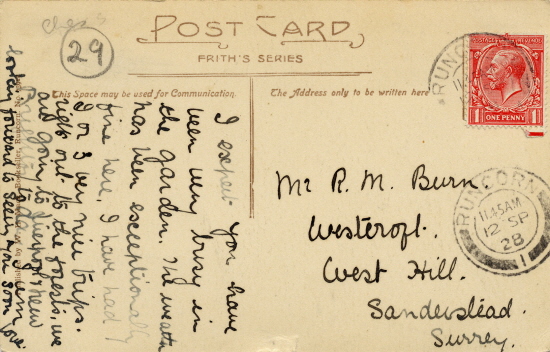 Ches
29
POST CARD
FRITH'S SERIES
This Space may be used for Communication.
The Address only to be written here
POSTAGE REVENUE
ONE PENNY
1 1
RUNCORN
RUNCORN
11.45AM
12 SP
28
1
Mr R. M. Burn
Westcroft.
West Hill.
Sanderstead.
Surrey.
I expect you have
been very busy in
the garden. The weather
has been exceptionally
fine here. I have had
2 or 3 very nice trips.
right out to the forests, we
are going to
looking forward to seeing you soon love